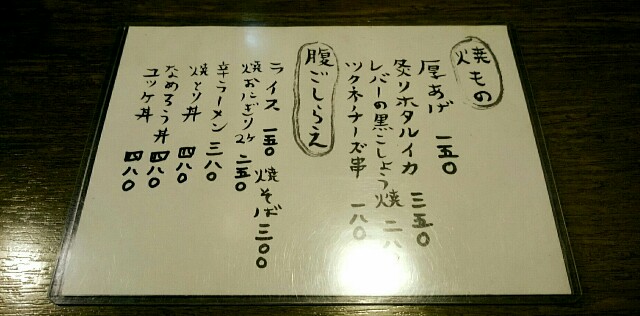 焼もの
厚あげ 一五〇
炙りホタルイカ 三五〇
レバーの黒こしょう焼 二八
ツクネチーズ串 一八〇
腹ごしらえ
ライス 一五〇 焼そば 三〇〇
焼おにぎり2ケ 二五〇
辛ラーメン 三八〇
焼とり丼 四八〇
なめろう丼 四八〇
ユッケ丼 四八〇